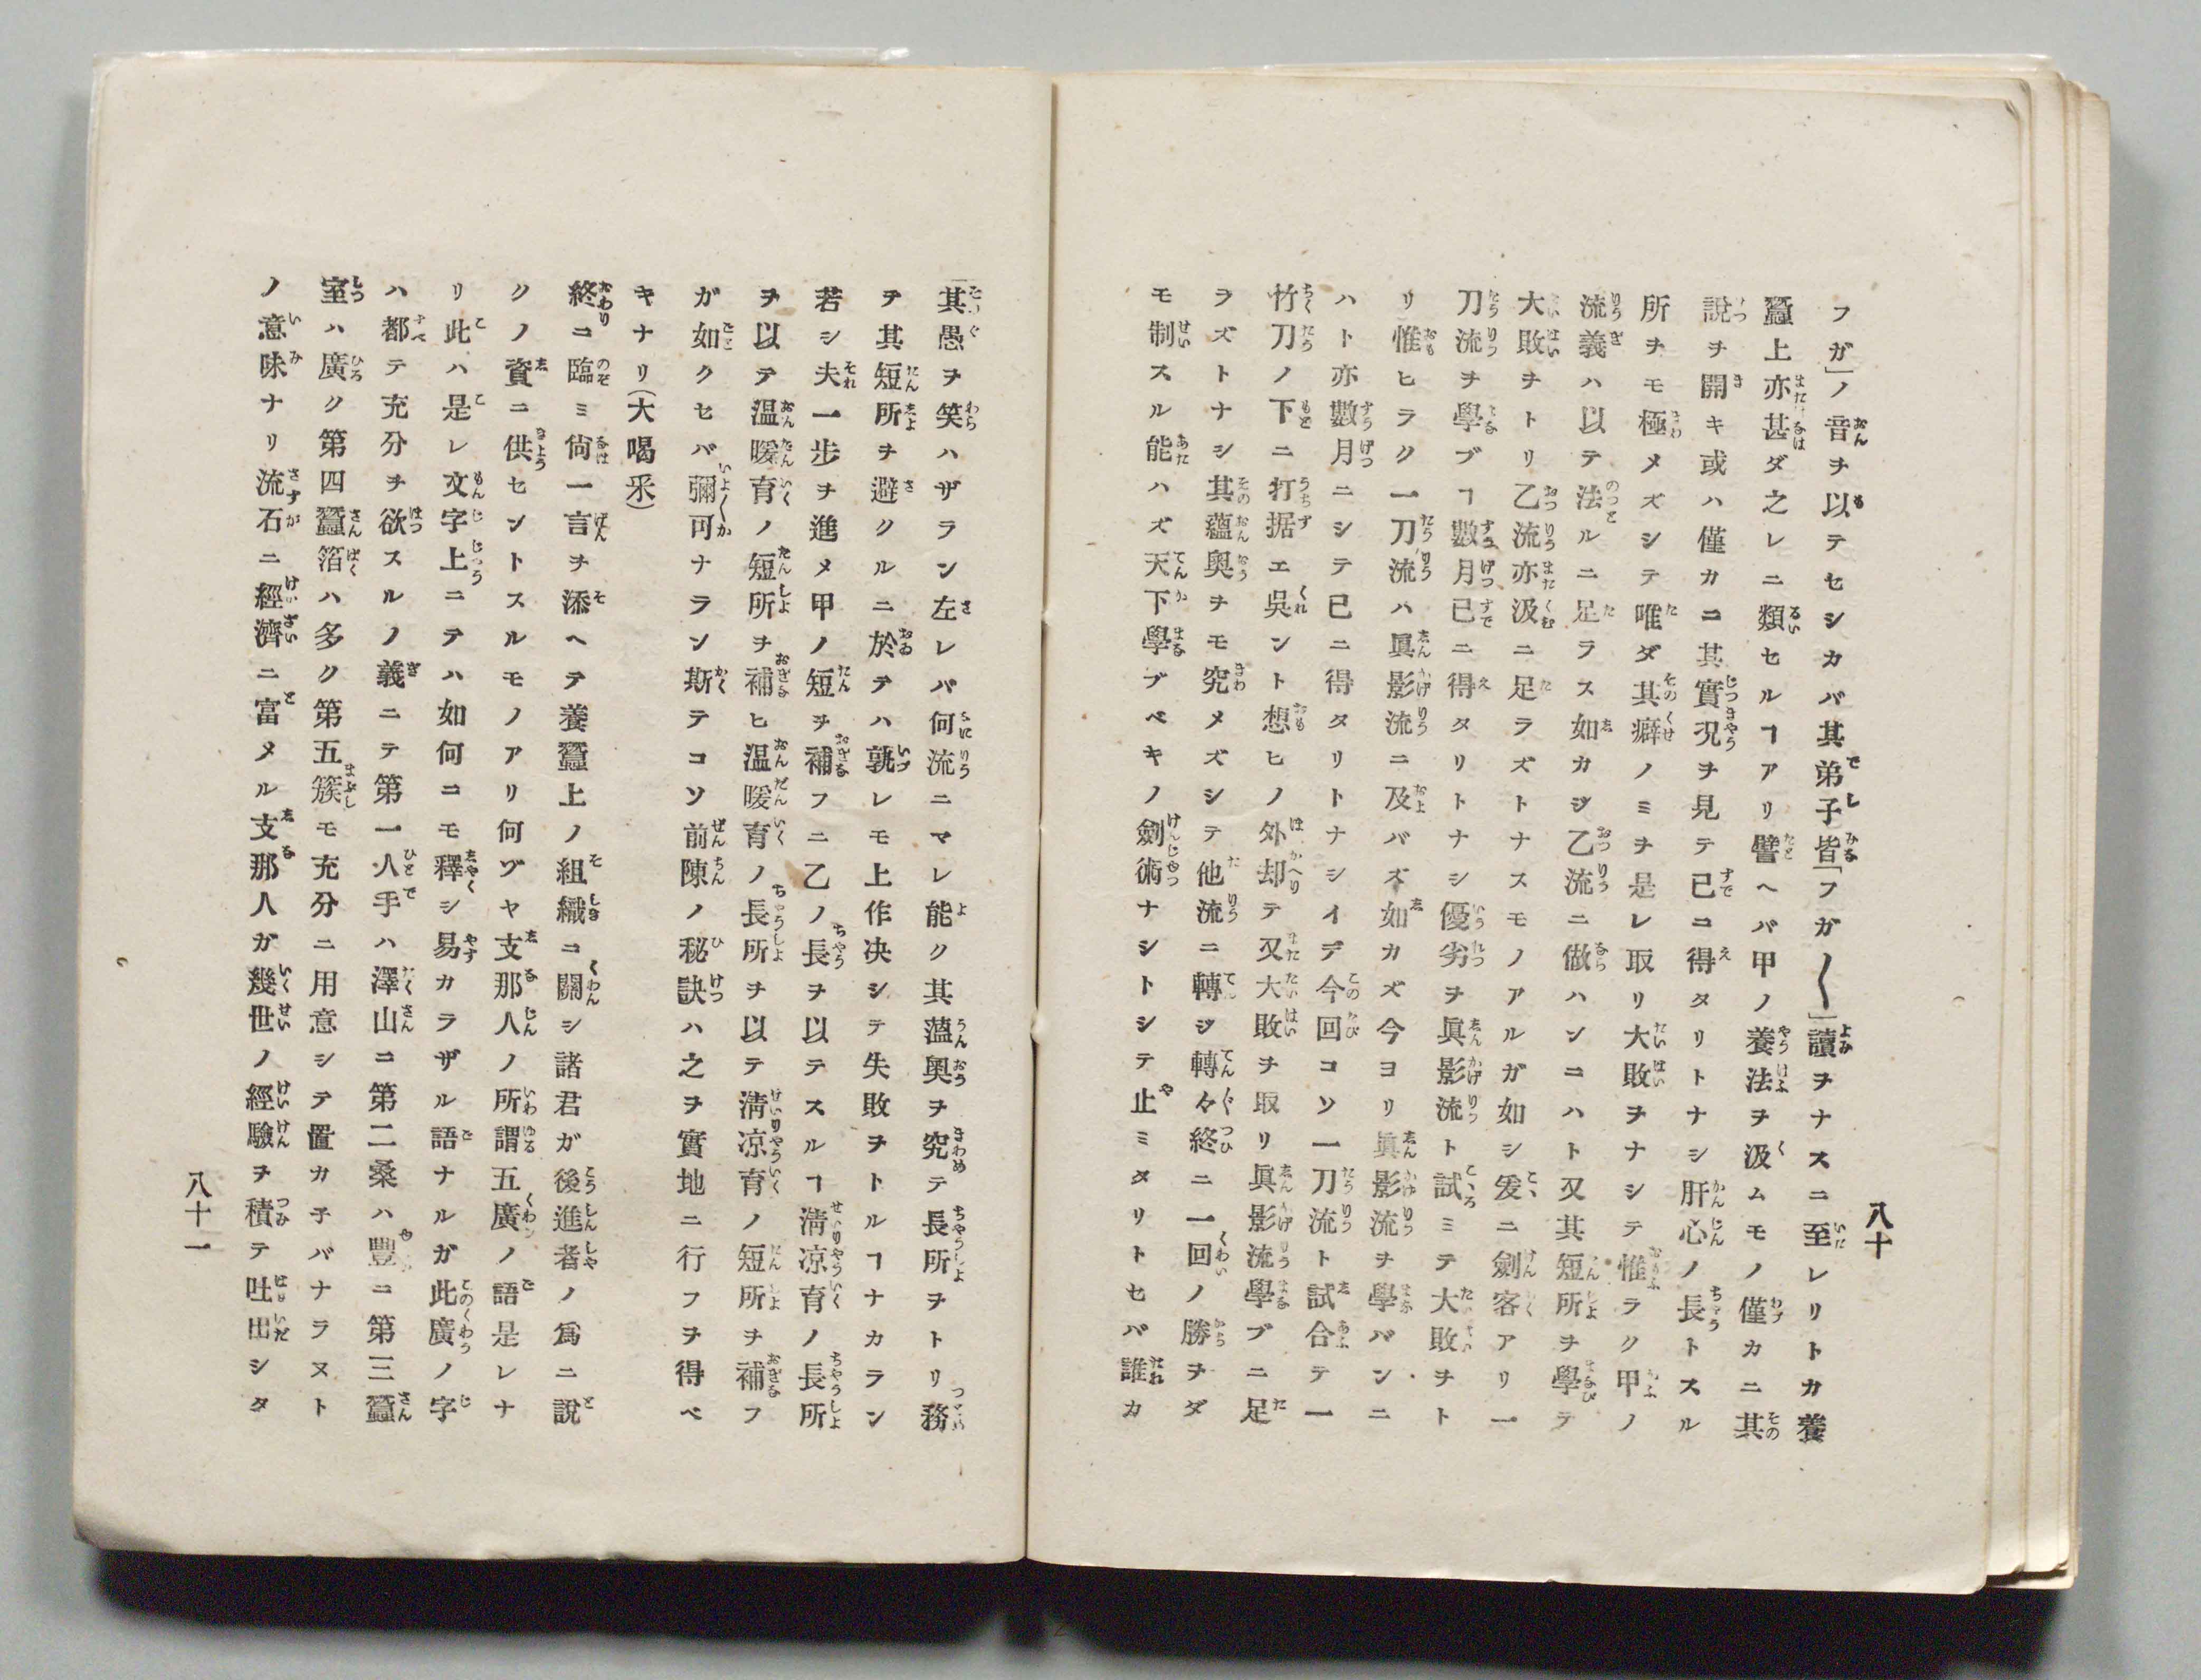 八十
フガ」ノ音ヲ以テセシカバ其弟子皆「フガ〱」讀ヲナスニ至レリトカ養
蠶上亦甚ダ之レニ類セルヿアリ譬ヘバ甲ノ養法ヲ汲ムモノ僅カニ其
說ヲ開キ或ハ僅カニ其實況ヲ見テ已ニ得タリトナシ肝心ノ長トスル
所ヲモ極メズシテ唯ダ其癖ノミヲ是レ取リ大敗ヲナシテ惟ラク甲ノ
流義ハ以テ法ルニ足ラス如カジ乙流ニ倣ハンニハト又其短所ヲ學テ
大敗ヲトリ乙流亦汲ニ足ラズトナスモノアルガ如シ爰ニ劍客アリ一
刀流ヲ學ブヿ數月已ニ得タリトナシ優劣ヲ眞影流ト試ミテ大敗ヲト
リ惟ヒラク一刀流ハ眞影流ニ及バズ如カズ今ヨリ眞影流ヲ學バンニ
ハト亦數月ニシテ已ニ得タリトナシイデ今回コソ一刀流ト試合テ一
竹刀ノ下ニ打据エ吳ント想ヒノ外却テ又大敗ヲ取リ眞影流學ブニ足
ラズトナシ其蘊奧ヲモ究メズシテ他流ニ轉ジ轉々終ニ一回ノ勝ヲダ
モ制スル能ハズ天下學ブベキノ劍術ナシトシテ止ミタリトセバ誰カ
其愚ヲ笑ハザラン左レバ何流ニマレ能ク其薀奧ヲ究テ長所ヲトリ務
テ其短所ヲ避クルニ於テハ孰レモ上作决シテ失敗ヲトルヿナカラン
若シ夫一步ヲ進メ甲ノ短ヲ補フニ乙ノ長ヲ以テスルヿ淸凉育ノ長所
ヲ以テ温暖育ノ短所ヲ補ヒ温暖育ノ長所ヲ以テ淸凉育ノ短所ヲ補フ
ガ如クセバ彌可ナラン斯テコソ前陳ノ秘訣ハ之ヲ實地ニ行フヲ得ベ
キナリ(大喝釆)
終ニ臨ミ尙一言ヲ添ヘテ養蠶上ノ組織ニ關シ諸君ガ後進者ノ爲ニ說
クノ資ニ供セントスルモノアリ何ヅヤ支那人ノ所謂五廣ノ語是レナ
リ此ハ是レ文字上ニテハ如何ニモ釋シ易カラザル語ナルガ此廣ノ字
ハ都テ充分ヲ欲スルノ義ニテ第一人手ハ澤山ニ第二桑ハ豐ニ第三蠶
室ハ廣ク第四蠶箔ハ多ク第五簇モ充分ニ用意シテ置カ子バナラヌト
ノ意味ナリ流石ニ經濟ニ富メル支那人ガ幾世ノ經驗ヲ積テ吐出シタ
八十一